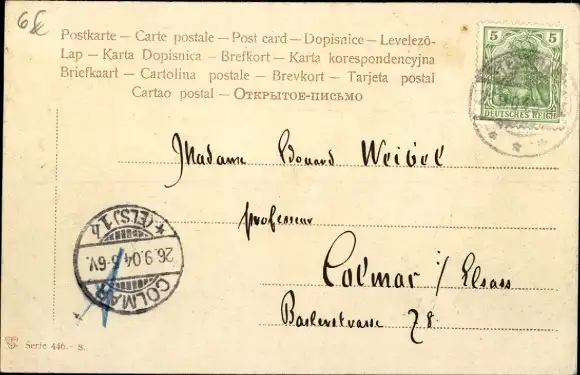 6.-
Postkarte – Carte postale – Post card – Dopisnice – Levelező-
Lap – Karta Dopisnica – Brefkort – Karta korespondencyjna
Briefkaart – Cartolina postale – Brevkort – Tarjeta postal
Cartao postal – Открытое-письмо
5 5
DEUTSCHES REICH
Madame Edouard Weibel
professeur
Colmar i/ Elsass
Baslerstrasse 78
COLMAR
* (ELS) 1 h
26.9.04.5-6V.
Serie 446. – 8.